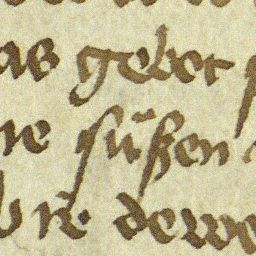 as gebet
ne süßen
dewe